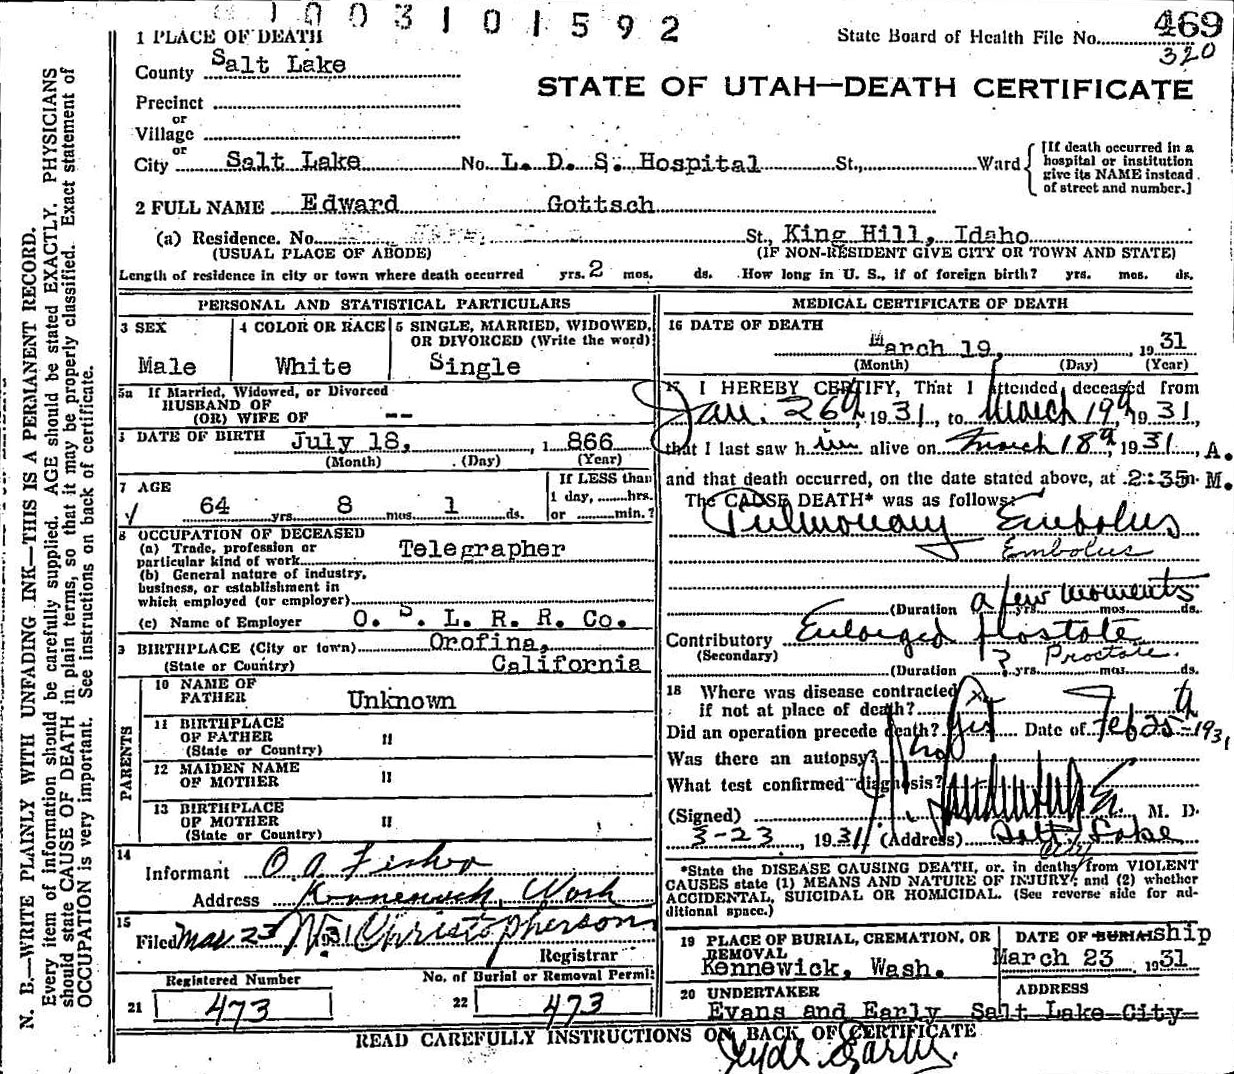 1003101592
1 PLACE OF DEATH
State Board of Health File No. 469
320
County Salt Lake
STATE OF UTAH—DEATH CERTIFICATE
Precinct
or
Village
or
City Salt Lake No. L. D. S. Hospital St., Ward
[If death occurred in a
hospital or institution
give its NAME instead
of street and number.]
2 FULL NAME Edward Gottsch
(a) Residence. No. St., King Hill, Idaho
(USUAL PLACE OF ABODE) (IF NON-RESIDENT GIVE CITY OR TOWN AND STATE)
Length of residence in city or town where death occurred yrs. 2 mos. ds. How long in U. S., if of foreign birth? yrs. mos. ds.
PERSONAL AND STATISTICAL PARTICULARS
3 SEX
Male
4 COLOR OR RACE
White
5 SINGLE, MARRIED, WIDOWED,
OR DIVORCED (Write the word)
Single
5a If Married, Widowed, or Divorced
HUSBAND OF
(OR) WIFE OF --
DATE OF BIRTH July 18, 1 866
(Month) (Day) (Year)
7 AGE
64 yrs 8 mos 1 ds.
If LESS than
1 day, hrs.
or min.?
8 OCCUPATION OF DECEASED
(a) Trade, profession or
particular kind of work Telegrapher
(b) General nature of industry,
business, or establishment in
which employed (or employer)
(c) Name of Employer O. S. L. R. R. Co.
9 BIRTHPLACE (City or town) Orofina,
(State or Country) California
PARENTS
10 NAME OF
FATHER Unknown
11 BIRTHPLACE
OF FATHER "
(State or Country)
12 MAIDEN NAME
OF MOTHER "
13 BIRTHPLACE
OF MOTHER "
(State or Country)
14
Informant O A Fisher
Address Kennewick, Wash
15
Filed Mar 23 1931 Christopherson
Registrar
Registered Number
21 473
No. of Burial or Removal Permit
22 473
MEDICAL CERTIFICATE OF DEATH
16 DATE OF DEATH
March 19, 1931
(Month) (Day) (Year)
17 I HEREBY CERTIFY, That I attended deceased from
Jan. 26th, 1931, to March 19th, 1931,
that I last saw him alive on March 18th, 1931, A.
and that death occurred, on the date stated above, at 2:35 M.
The CAUSE DEATH* was as follows:
Pulmonary Embolus
Embolus
(Duration a few moments yrs. mos. ds.
Contributory Enlarged Prostate
(Secondary) Prostate.
(Duration ? yrs. mos. ds.
18 Where was disease contracted
if not at place of death?
Did an operation precede death? Yes Date of Feb 25th 1931
Was there an autopsy? no
What test confirmed diagnosis?
(Signed) M. D.
3-23, 1931 (Address) Salt Lake
City
*State the DISEASE CAUSING DEATH, or, in deaths from VIOLENT
CAUSES state (1) MEANS AND NATURE OF INJURY; and (2) whether
ACCIDENTAL, SUICIDAL OR HOMICIDAL. (See reverse side for ad-
ditional space.)
19 PLACE OF BURIAL, CREMATION, OR
REMOVAL
Kennewick, Wash.
DATE OF BURIAL ship
March 23, 1931
20 UNDERTAKER
Evans and Early
ADDRESS
Salt Lake City
READ CAREFULLY INSTRUCTIONS ON BACK OF CERTIFICATE
N. B.—WRITE PLAINLY WITH UNFADING INK—THIS IS A PERMANENT RECORD.
Every item of information should be carefully supplied. AGE should be stated EXACTLY. PHYSICIANS
should state CAUSE OF DEATH in plain terms, so that it may be properly classified. Exact statement of
OCCUPATION is very important. See instructions on back of certificate.